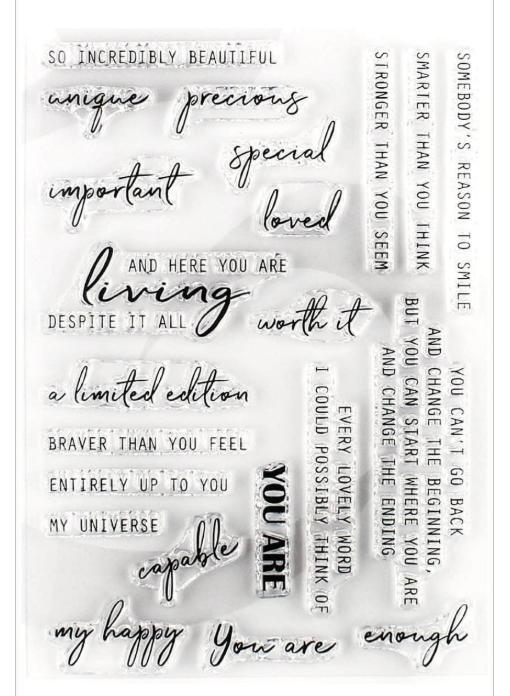 SO INCREDIBLY BEAUTIFUL
unique
precious
special
important
loved
AND HERE YOU ARE
living
DESPITE IT ALL
worth it
a limited edition
BRAVER THAN YOU FEEL
ENTIRELY UP TO YOU
MY UNIVERSE
capable
YOU ARE
my happy
You are
enough
SOMEBODY'S REASON TO SMILE
SMARTER THAN YOU THINK
STRONGER THAN YOU SEEM
YOU CAN'T GO BACK
AND CHANGE THE BEGINNING,
BUT YOU CAN START WHERE YOU ARE
AND CHANGE THE ENDING
EVERY LOVELY WORD
I COULD POSSIBLY THINK OF